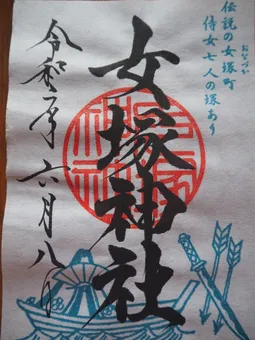 伝説の女塚町
おなづか
侍女七人の塚あり
女塚神社
令和元年六月八日